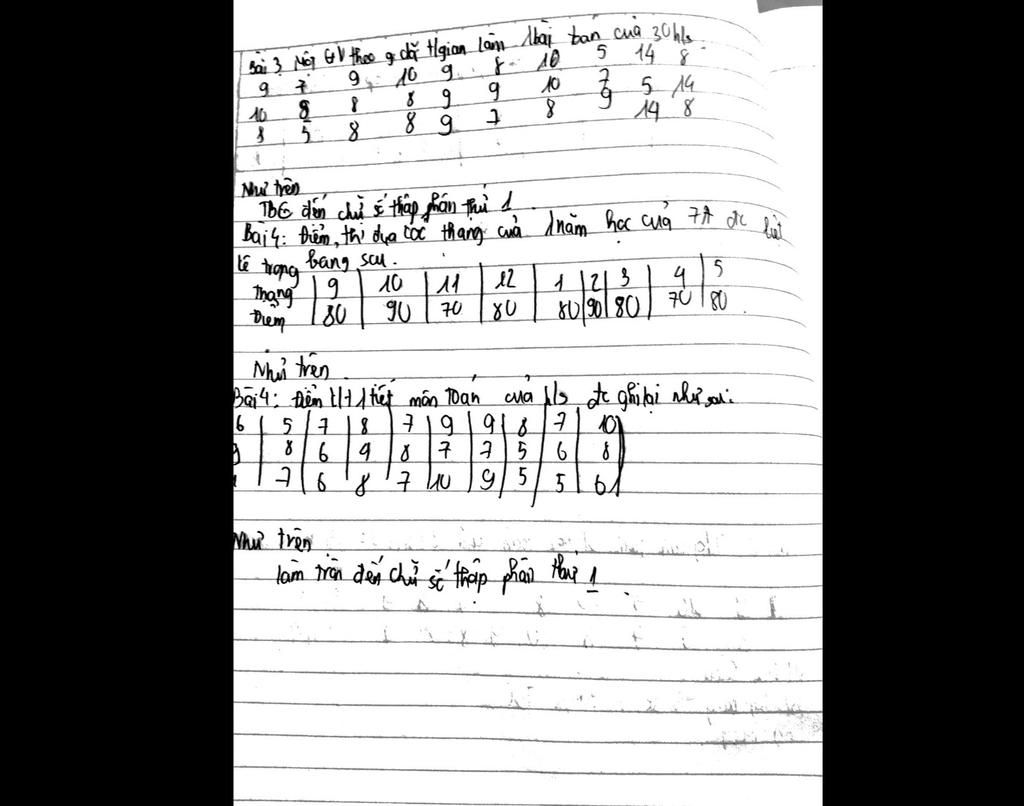 Bài 3 Một GV theo dõi t/gian làm 1 bài toán của 30 h/s
9 7 9 10 9 8 10 5 14 8
10 8 8 8 9 9 10 7 5 14
8 5 8 8 9 7 8 9 14 8
Như trên
TBC đến chữ số thập phân thứ 1
Bài 4: Điểm thi đua các tháng của 1 năm học của 7A đc liệt
kê trong bảng sau.
Tháng 9 10 11 12 1 2 3 4 5
Điểm 80 90 70 80 80 90 80 70 80
Như trên
Bài 4: Điểm k/t 1 tiết môn toán của h/s đc ghi lại như sau:
6 5 7 8 7 9 9 8 7 10
8 6 9 8 7 7 5 6 8
7 6 8 7 10 9 5 5 6
Như trên
làm tròn đến chữ số thập phân thứ 1